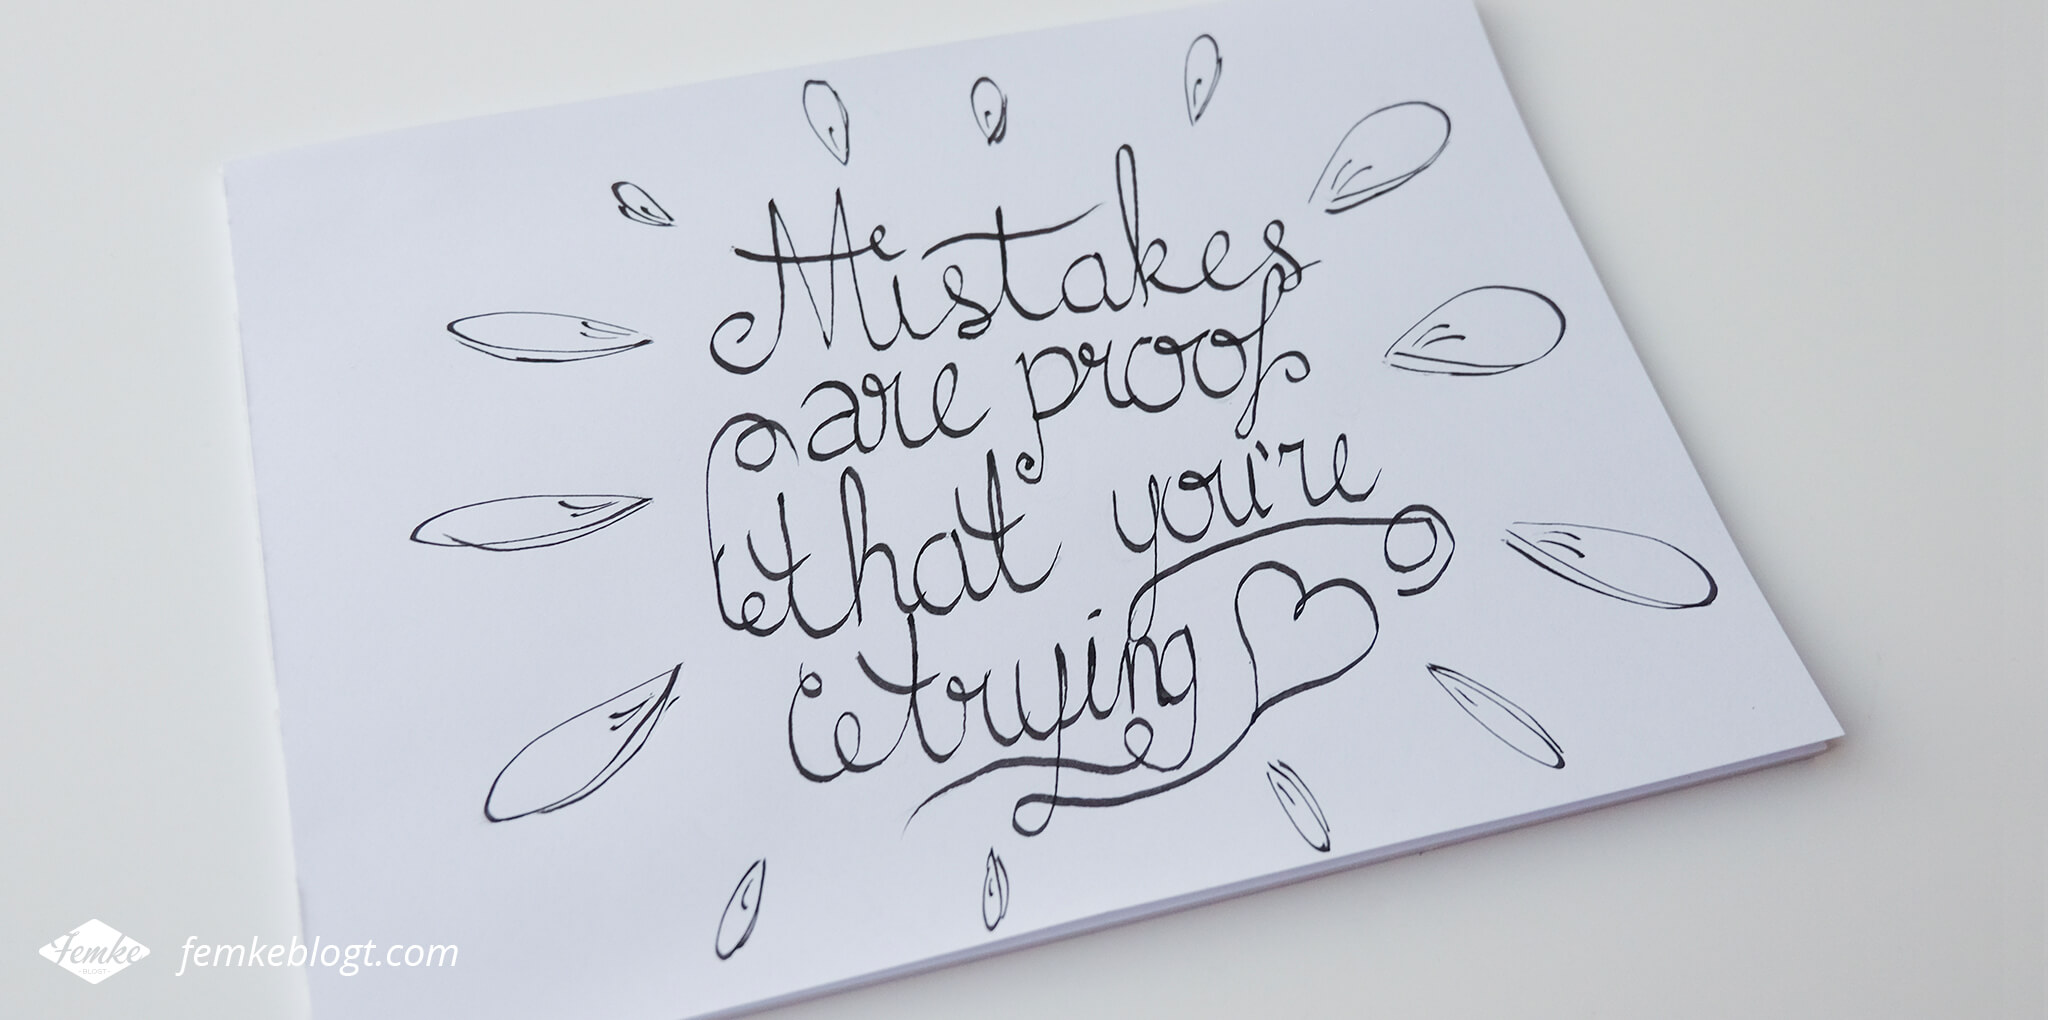 Mistakes
are proof
that you're
trying
Femke
BLOGT
femkeblogt.com